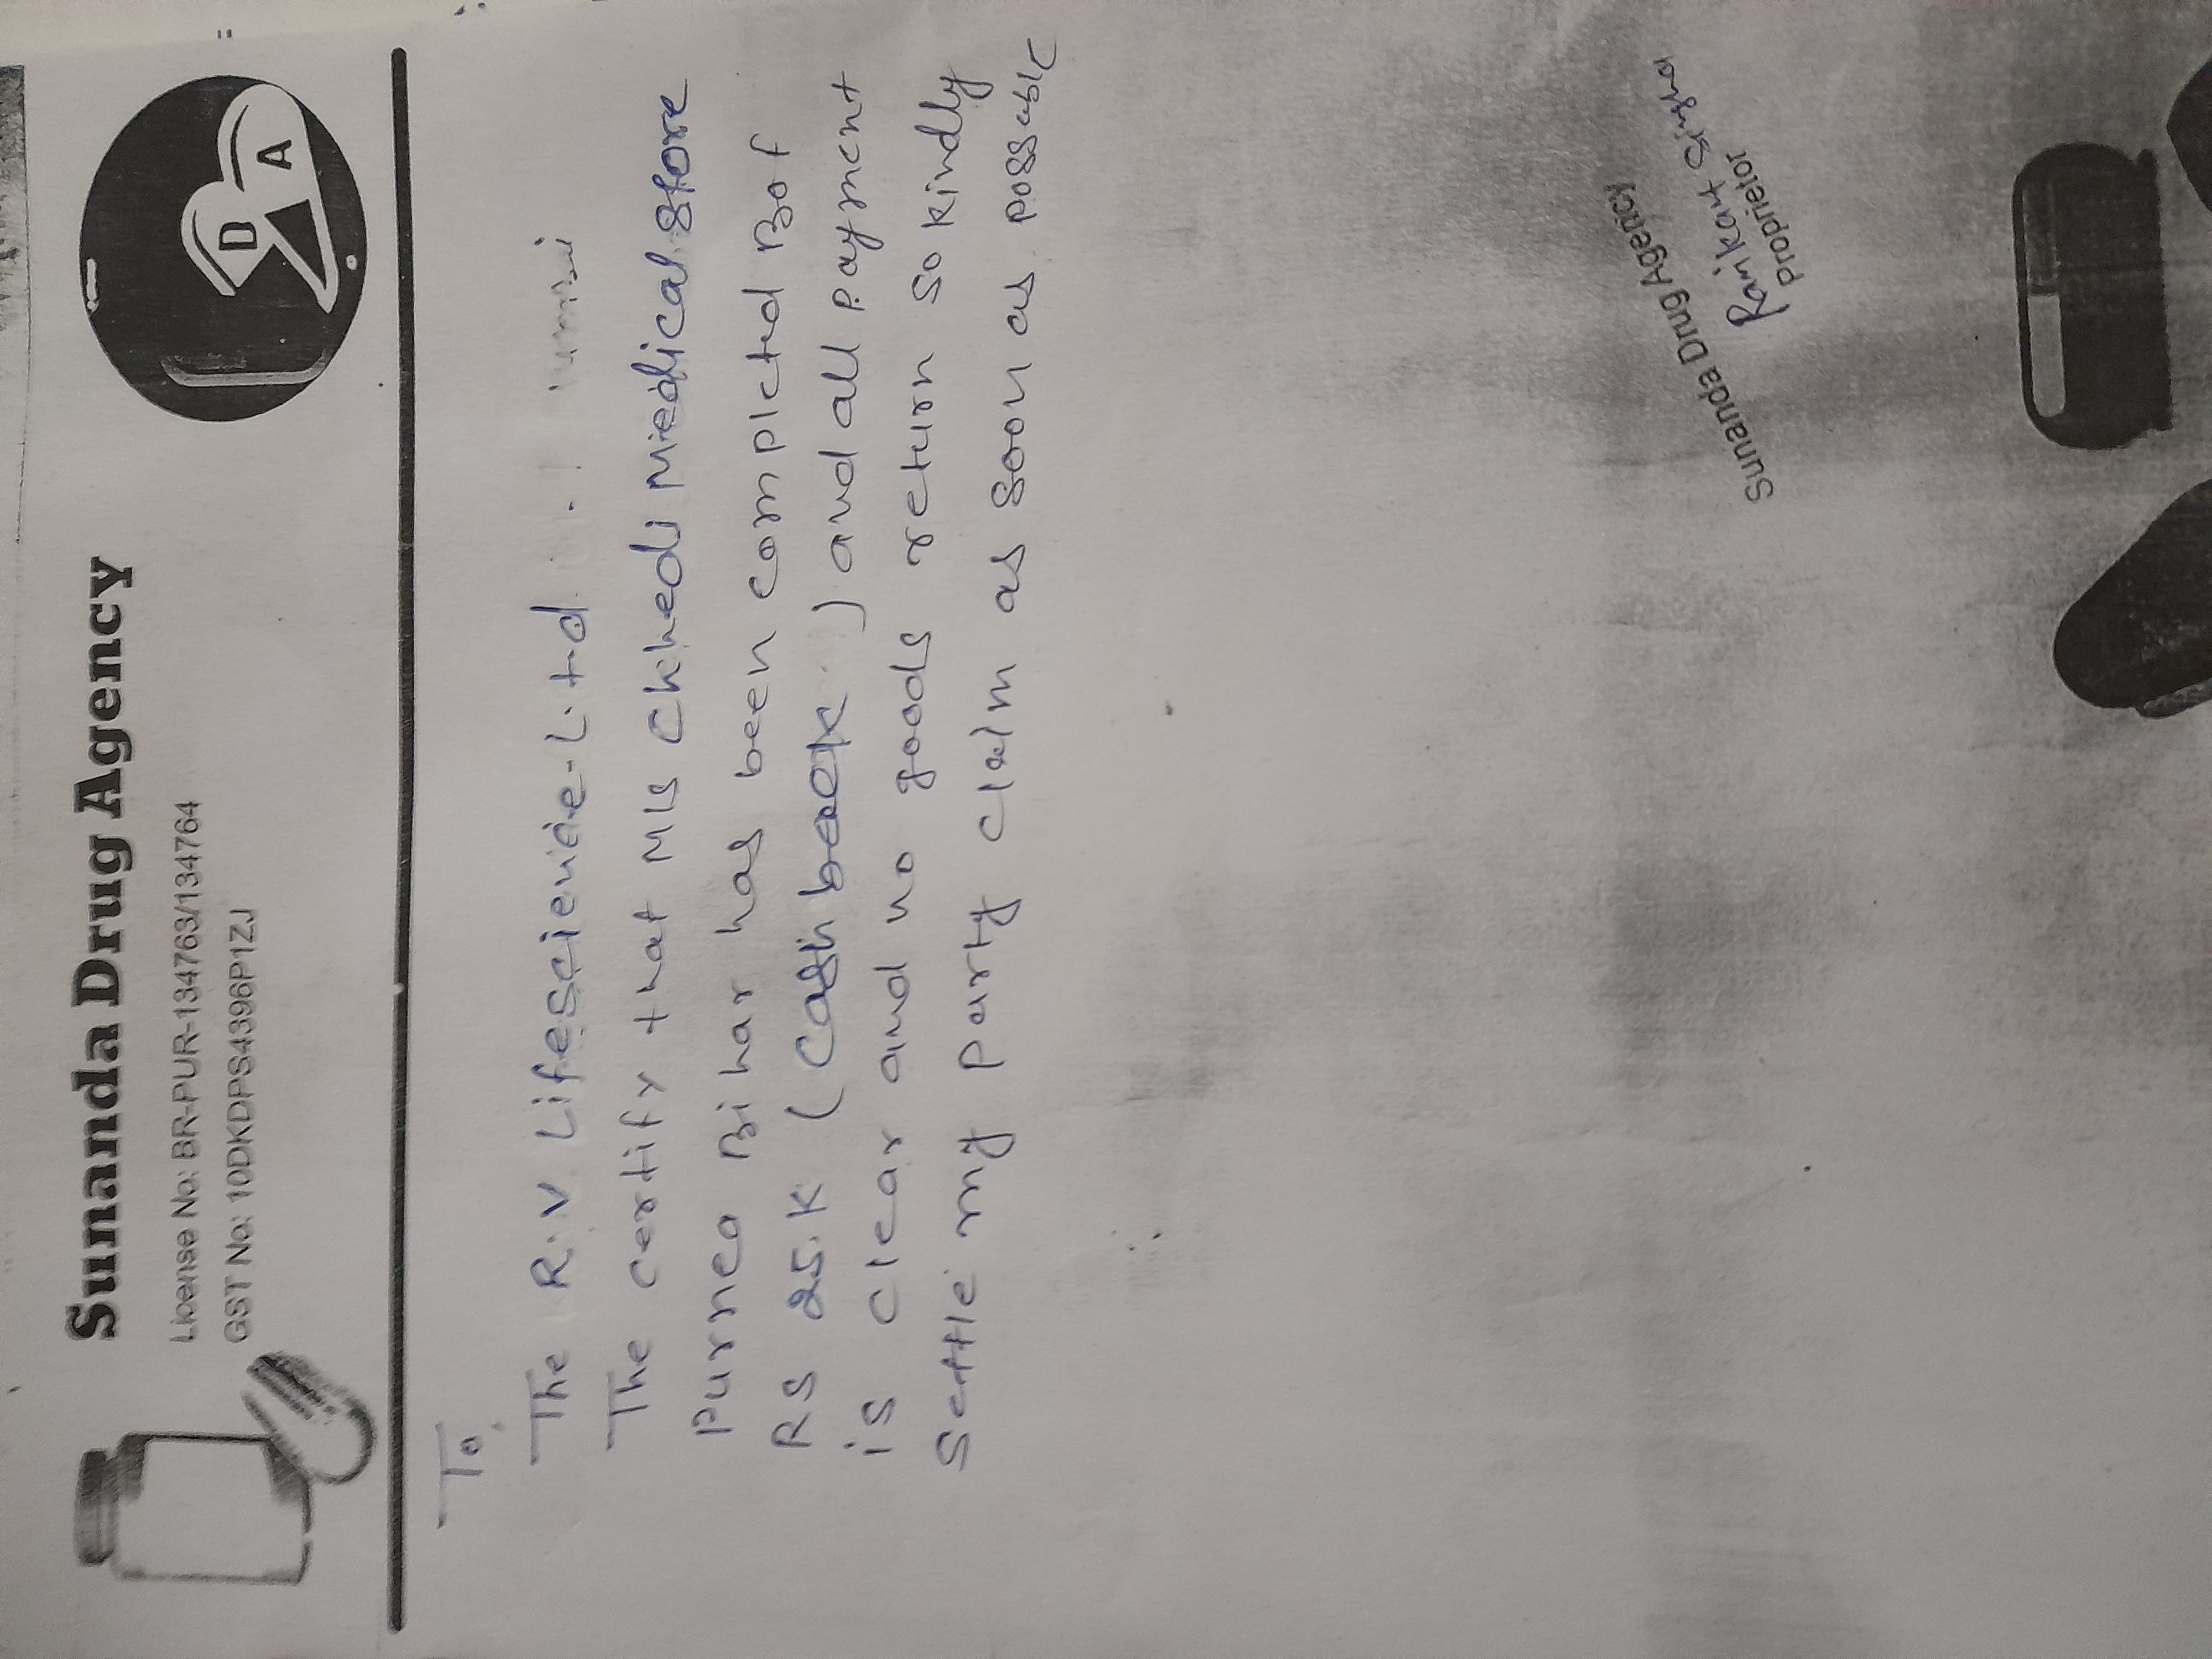 Sunanda Drug Agency
License No: BR-PUR-134763/134764
GST No: 10DKDPS4396P1ZJ
D A
To,
The R.V. Lifescience L.td
The certify that M/s Chhedi Medical Store
Purnea Bihar has been completed Bof
RS 25.K (Cash back) and all Payment
is clear and no goods return so kindly
settle my party claim as soon as possable
Sunanda Drug Agency
Proprietor